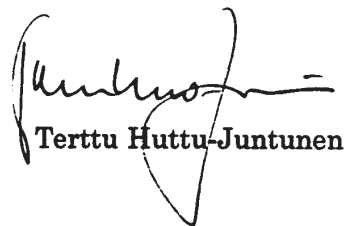 Terttu Huttu-Juntunen